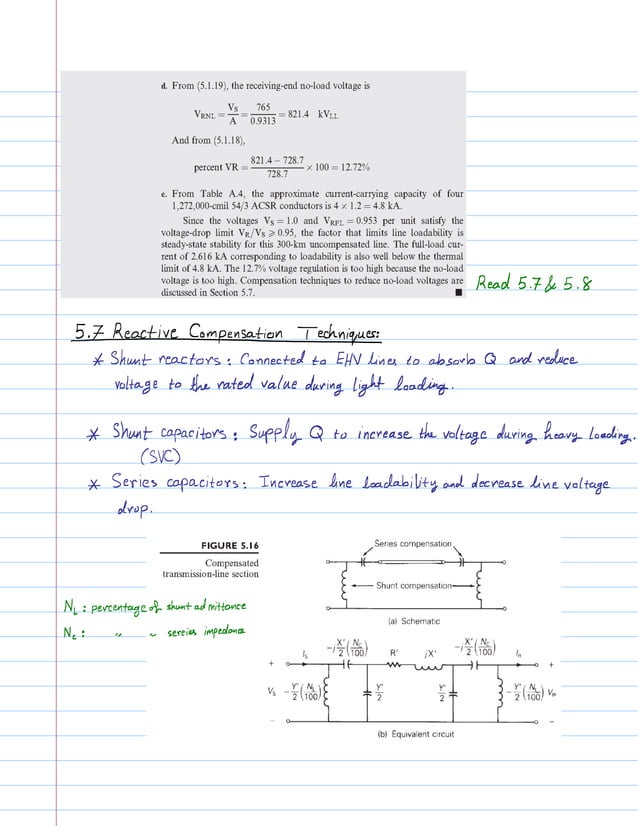 d. From (5.1.19), the receiving-end no-load voltage is
V_RNL = V_S / A = 765 / 0.9313 = 821.4 kV_LL
And from (5.1.18),
percent VR = (821.4 − 728.7) / 728.7 × 100 = 12.72%
e. From Table A.4, the approximate current-carrying capacity of four
1,272,000-cmil 54/3 ACSR conductors is 4 × 1.2 = 4.8 kA.
Since the voltages V_S = 1.0 and V_RFL = 0.953 per unit satisfy the
voltage-drop limit V_R/V_S ⩾ 0.95, the factor that limits line loadability is
steady-state stability for this 300-km uncompensated line. The full-load cur-
rent of 2.616 kA corresponding to loadability is also well below the thermal
limit of 4.8 kA. The 12.7% voltage regulation is too high because the no-load
voltage is too high. Compensation techniques to reduce no-load voltages are
discussed in Section 5.7. ■
Read 5.7 & 5.8
5.7 Reactive Compensation Techniques:
* Shunt reactors : Connected to EHV lines to absorb Q and reduce
voltage to the rated value during light loading.
* Shunt capacitors : Supply Q to increase the voltage during heavy loading.
(SVC)
* Series capacitors: Increase line loadability and decrease line voltage
drop.
FIGURE 5.16
Compensated
transmission-line section
Series compensation
Shunt compensation
(a) Schematic
N_L : percentage of shunt admittance
N_c : " " sereies impedance
I_S −j X'/2 (N_C/100) R' jX' −j X'/2 (N_C/100) I_R
+ +
V_S −Y'/2 (N_L/100) Y'/2 Y'/2 −Y'/2 (N_L/100) V_R
− −
(b) Equivalent circuit